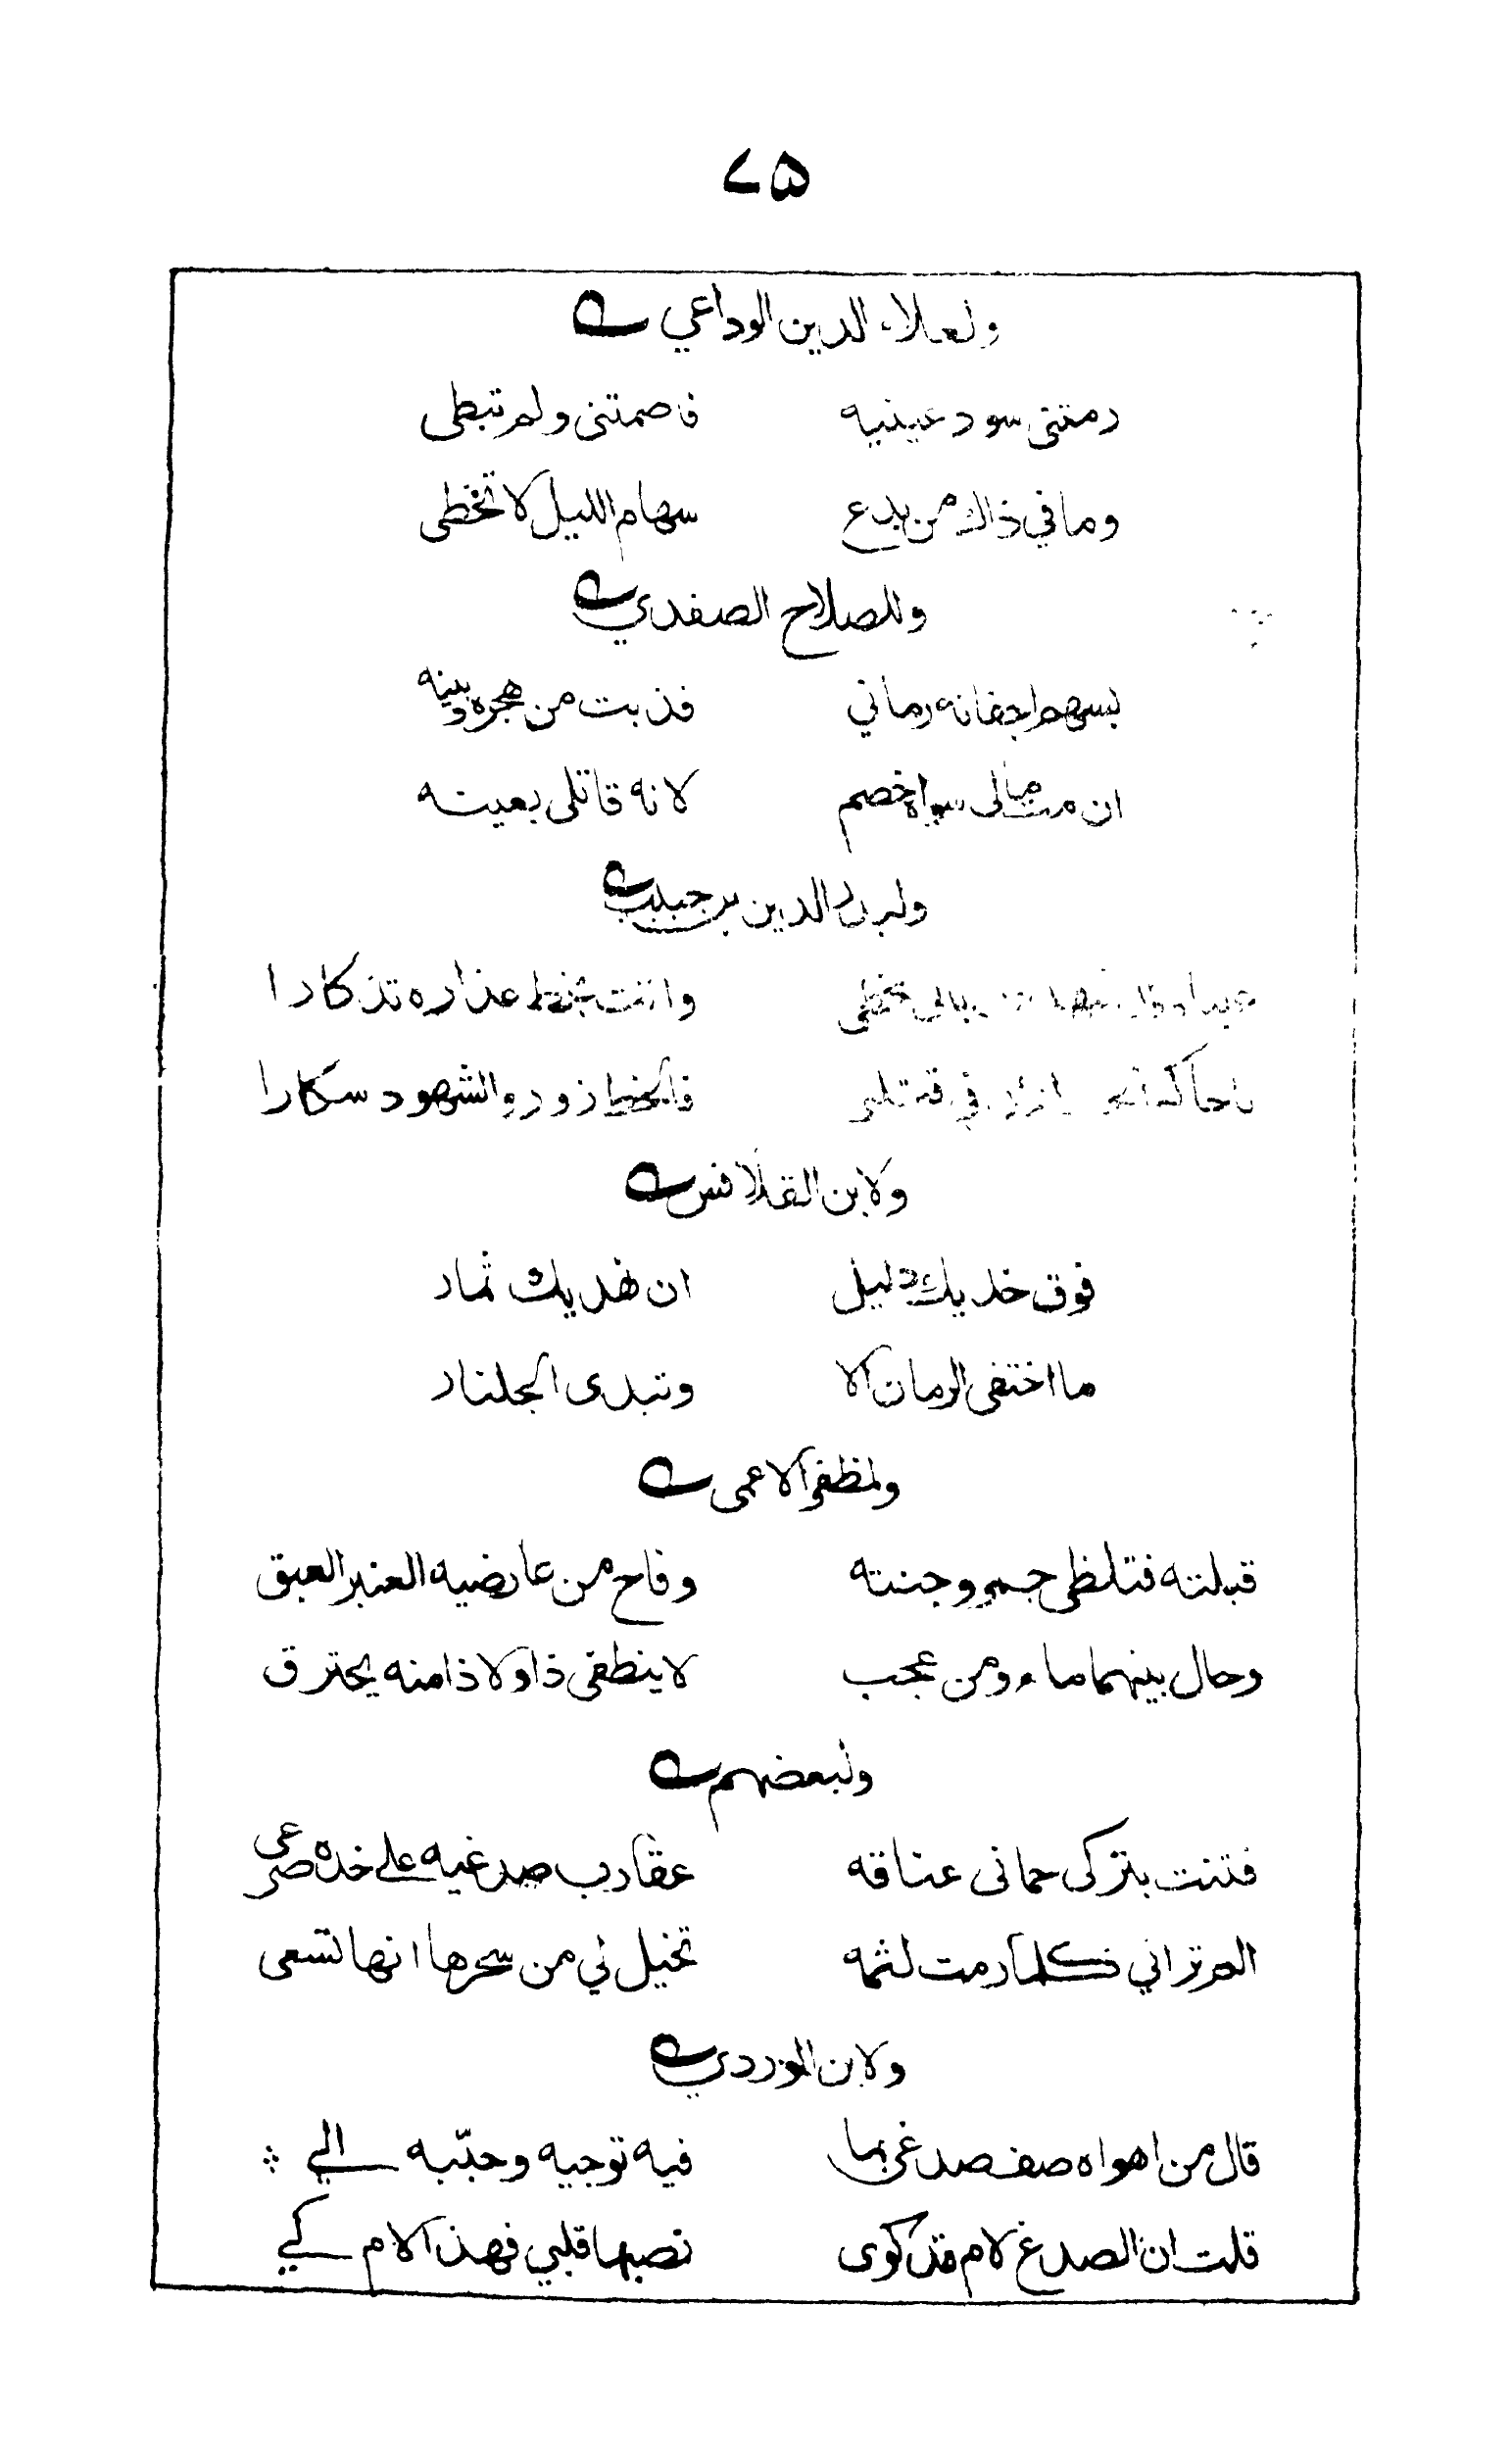 ٧٥
ولعلاء الدين الوداعي
رمتني سود عينيه فاصمتنى ولم تبطى
وما في ذاك من بدع سهام الليل لا تخطى
وللصلاح الصفدي
بسهم اجفانه رماني فذبت من هجره وبينه
ان مت مالى سواه خصم لانه قاتلى بعينه
ولبدر الدين بن حبيب
واتت بخط عذاره تذكارا
في قتلى فالخط زور والشهود سكارا
ولابن القلاقس
فوق خديك دليل ان نهديك ثمار
ما اختفى الرمان الا وتبدى الجلنار
ولمظفر الاعمى
قبلته فتلظى جمر وجنته وفاح من عارضيه العنبر العبق
وحال بينهما ماء ومن عجب لا ينطفى ذا ولا ذا منه يحترق
ولبعضهم
فتنت بتركى حمانى عناقه عقارب صدغيه على خده صرعى
الم تراني كلما رمت لثمه تخيل لي من سحرها انها تسعى
ولابن الوردي
قال من اهواه صف صدغى بما فيه توجيه وحبّبه الي
قلت ان الصدغ لام قد كوى نصبها قلبي فهذ الام كي